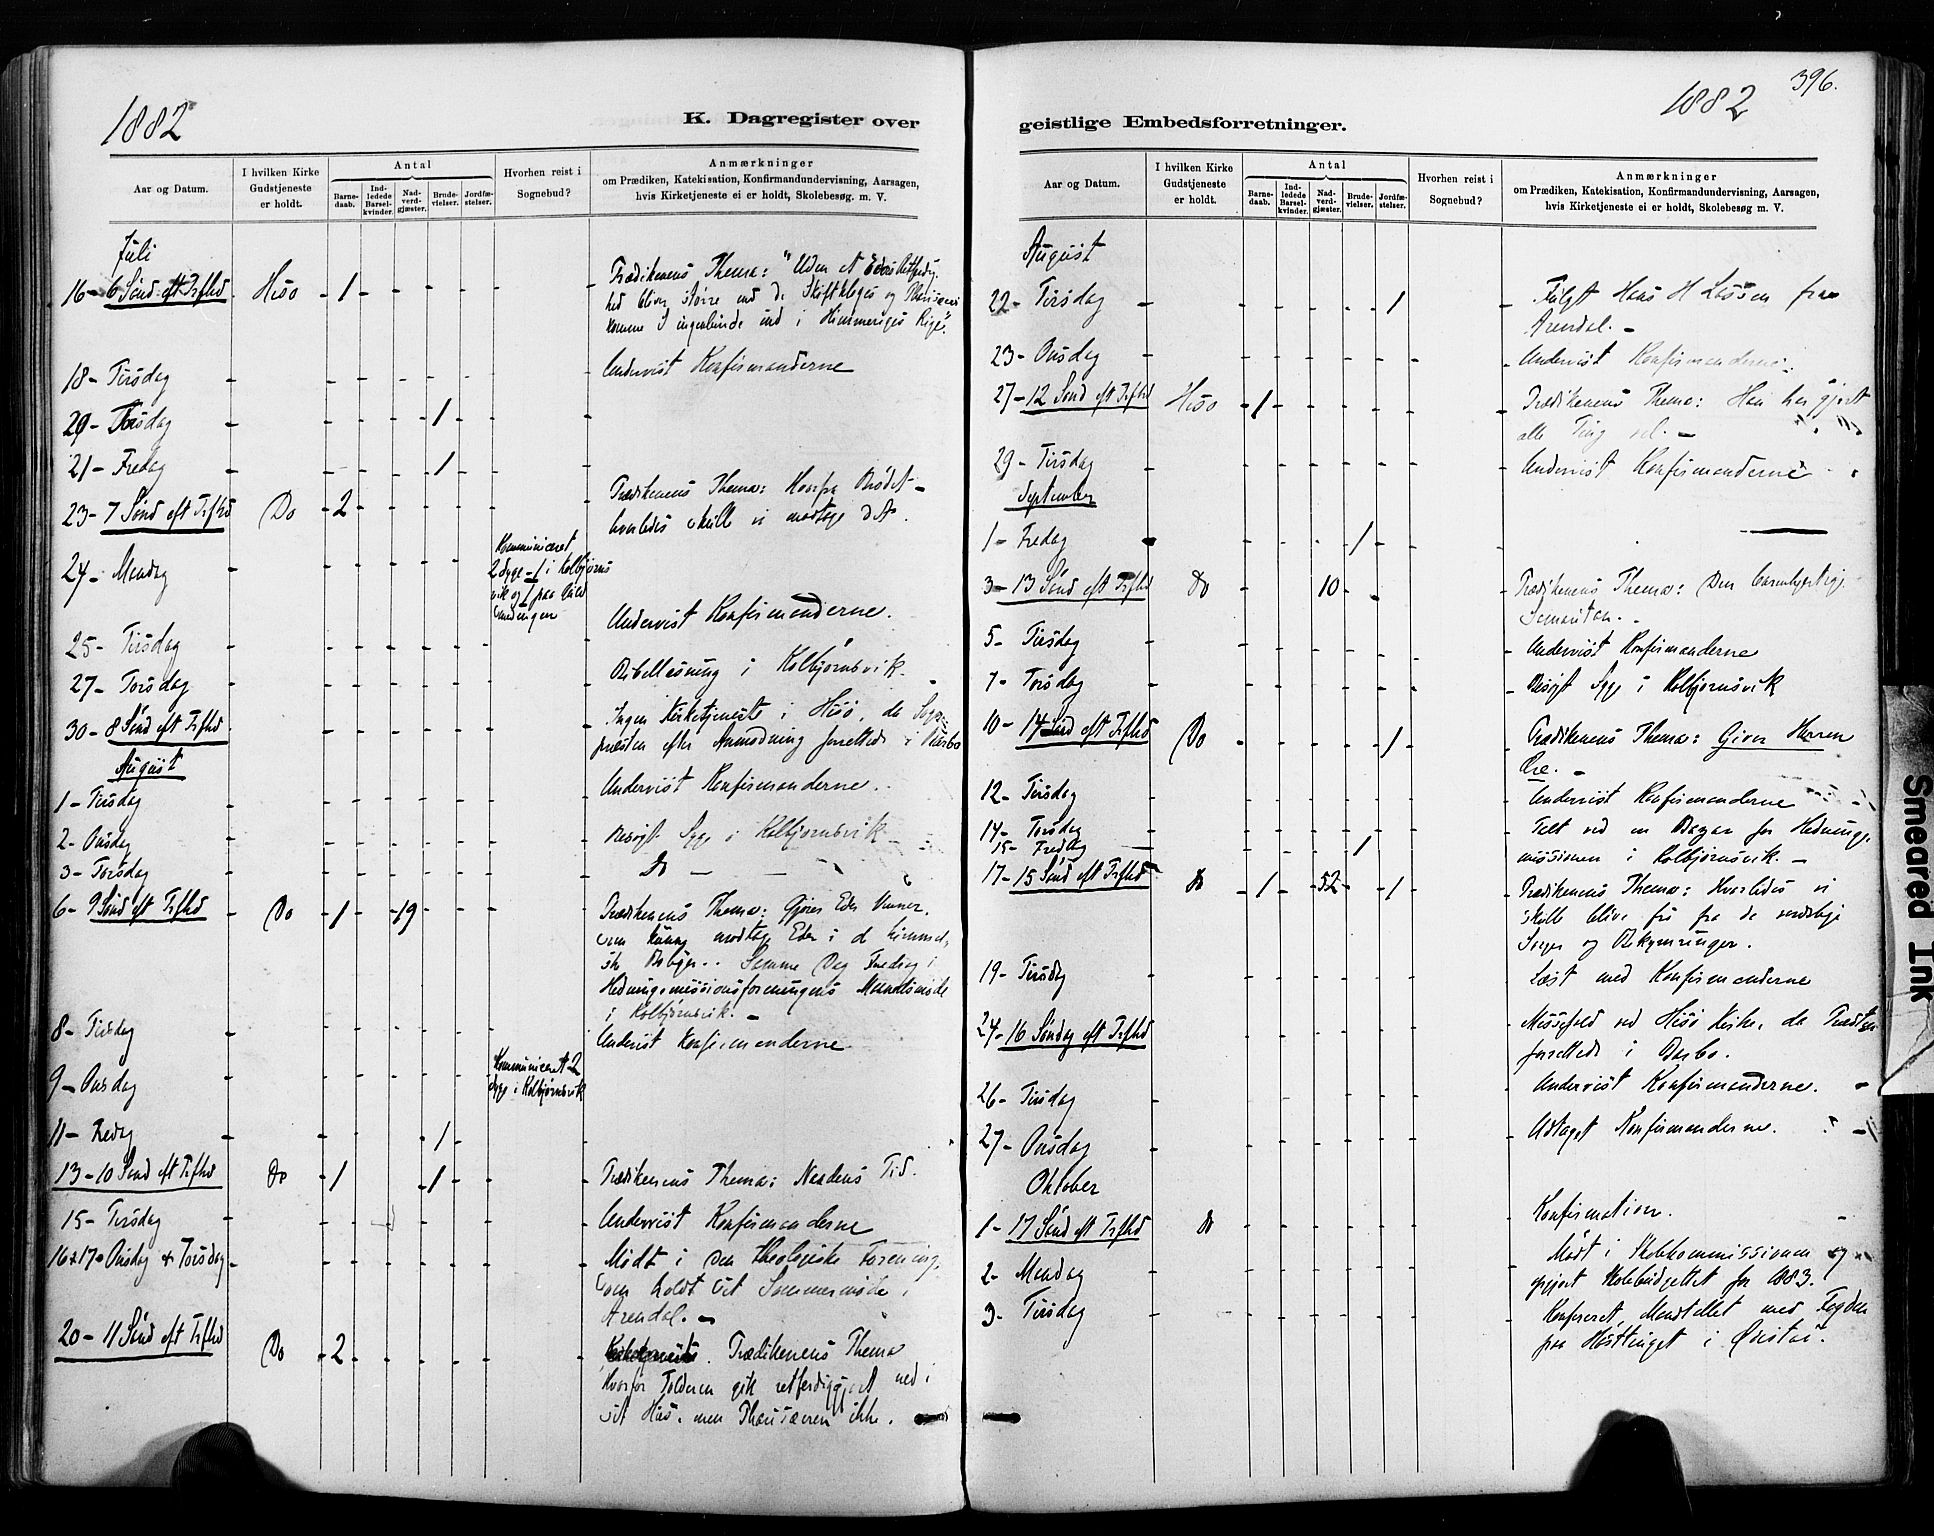 1882
K. Dagregister over
Aar og Datum.
I hvilken Kirke Gudstjeneste er holdt.
Antal
Barnedaab.
Indledede Barselkvinder.
Nadverdgjæster.
Brudevielser.
Jordfæstelser.
Hvorhen reist i Sognebud?
Anmærkninger
om Prædiken, Katekisation, Konfirmandundervisning, Aarsagen,
hvis Kirketjeneste ei er holdt, Skolebesøg. m. V.
Juli
16 - 6 Sønd. eft Trfhd Hisø 1 Prædikenens Thema: "Uden at Eders Retfærdig
hed bliver større end de Skriftkloges og Pharisæers
komme I ingenlunde ind i Himmeriges Rige".
18 - Tirsdag Undervist Konfirmanderne
20 - Torsdag 1
21 - Fredag 1
23 - 7 Sønd eft Trfhd Do 2 Prædikenens Thema: Hvorfra Brødet -
hvorledes skulle vi modtage det.
24 - Mandag Kommuniceret
2 syge - 1 i Kolbjørns
vik og 1 paa
Undervist Konfirmanderne.
25 - Tirsdag
27 - Torsdag Bibellæsning i Kolbjørnsvik.
30 - 8 Sønd eft Trfhd Ingen Kirketjeneste i Hisø, da Sogne
præsten efter Anmodning forrettede i Barbo
August
1 - Tirsdag Undervist Konfirmanderne.
2 - Onsdag Besøgt Syge i Kolbjørnsvik
3 - Torsdag Do
6 - 9 Sønd eft Trfhd Do 1 19 Prædikenens Thema: Gjører Eder Venner,
som kunne modtage Eder i de himmel
ske Boliger. Samme Dag Foredrag i
Hedningemissionsforeningens Maanedsmøde
i Kolbjørnsvik.
8 - Tirsdag Undervist Konfirmanderne
9 - Onsdag Kommuniceret 2
syge i Kolbjørnsvik
11 - Fredag 1
13 - 10 Sønd eft Trfhd Do 1 1 Prædikenens Thema: Naadens Tid.
15 - Tirsdag Undervist Konfirmanderne
16 & 17 - Onsdag & Torsdag Mødt i den theologiske Forening,
som holdt sit Sommermøde i
Arendal. -
20 - 11 Sønd eft Trfhd Do 2 Prædikenens Thema
Hvorfor Tolderen gik retferdiggjort ned i
sit Hus, men Pharisæeren ikke.
1882
396.
geistlige Embedsforretninger.
Aar og Datum.
I hvilken Kirke Gudstjeneste er holdt.
Antal
Barnedaab.
Indledede Barselkvinder.
Nadverdgjæster.
Brudevielser.
Jordfæstelser.
Hvorhen reist i Sognebud?
Anmærkninger
om Prædiken, Katekisation, Konfirmandundervisning, Aarsagen,
hvis Kirketjeneste ei er holdt, Skolebesøg m. V.
August
22 - Tirsdag 1 Fulgt Hans H Lassen fra
Arendal. -
23 - Onsdag Undervist Konfirmanderne
27 - 12 Sønd eft Trfhd Hisø 1 Prædikenens Thema: Han har gjort
alle Ting vel. -
29 - Tirsdag Undervist Konfirmanderne
September
1 - Fredag 1
3 - 13 Sønd eft Trfhd Do 10 Prædikenens Thema: Den barmhjertige
Samaritan.
5 - Tirsdag Undervist Konfirmanderne
7 - Torsdag Besøgt Syge i Kolbjørnsvik
10 - 14 Sønd eft Trfhd Do 1 Prædikenens Thema: Giver Herren
Ære. -
12 - Tirsdag Undervist Konfirmanderne
14 - Torsdag Talt ved en Bazar for Hedninge
missionen i Kolbjørnsvik. -
15 - Fredag 1
17 - 15 Sønd eft Trfhd Do 1 52 1 Prædikenens Thema: Hvorledes vi
skulle blive fri fra de verdslige
Sorger og Bekymringer.
19 - Tirsdag Læst med Konfirmanderne
24 - 16 Søndag eft Trfhd Messefald ved Hisø Kirke, da Præsten
forrettede i Barbo.
26 - Tirsdag Undervist Konfirmanderne.
27 - Onsdag Udtaget Konfirmanderne.
Oktober
1 - 17 Sønd eft Trfhd Do Konfirmation.
2 - Mandag Mødt i Skolekommissionen og
gjort Skolebudgettet for 1883.
3 - Tirsdag Konfereret Mandtallet med Fogden
paa Høsttinget i Øiestad.
Smeared Ink